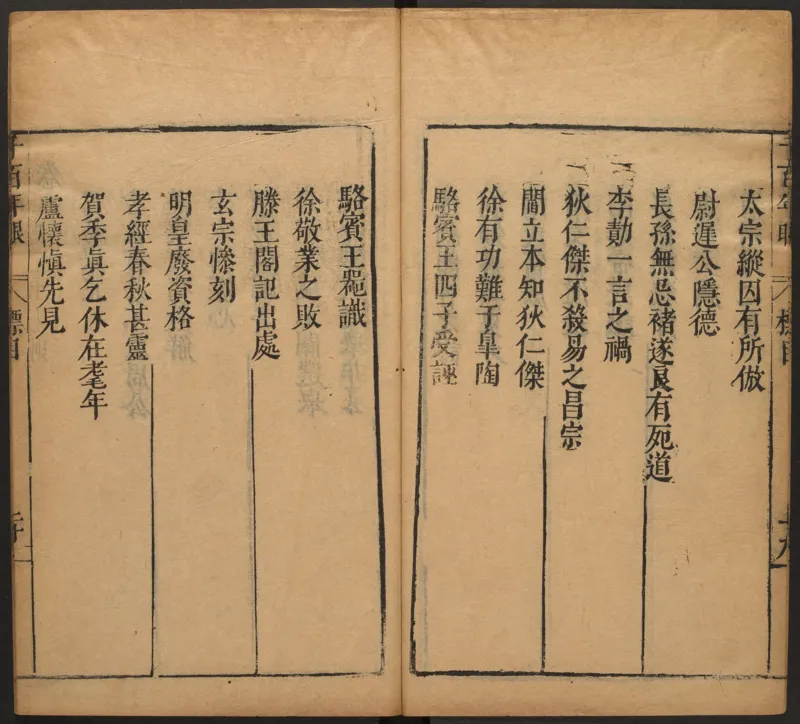 太宗縱囚有所倣
尉遲公隱德
長孫無忌褚遂良有死道
李勣一言之禍
狄仁傑不殺易之昌宗
閻立本知狄仁傑
徐有功難于臯陶
駱賓王四子受誣
駱賓王器識
徐敬業之敗
滕王閣記出處
玄宗慘刻
明皇廢資格
孝經春秋甚靈
賀季眞乞休在耄年
盧懷愼先見
千百年眼
標目